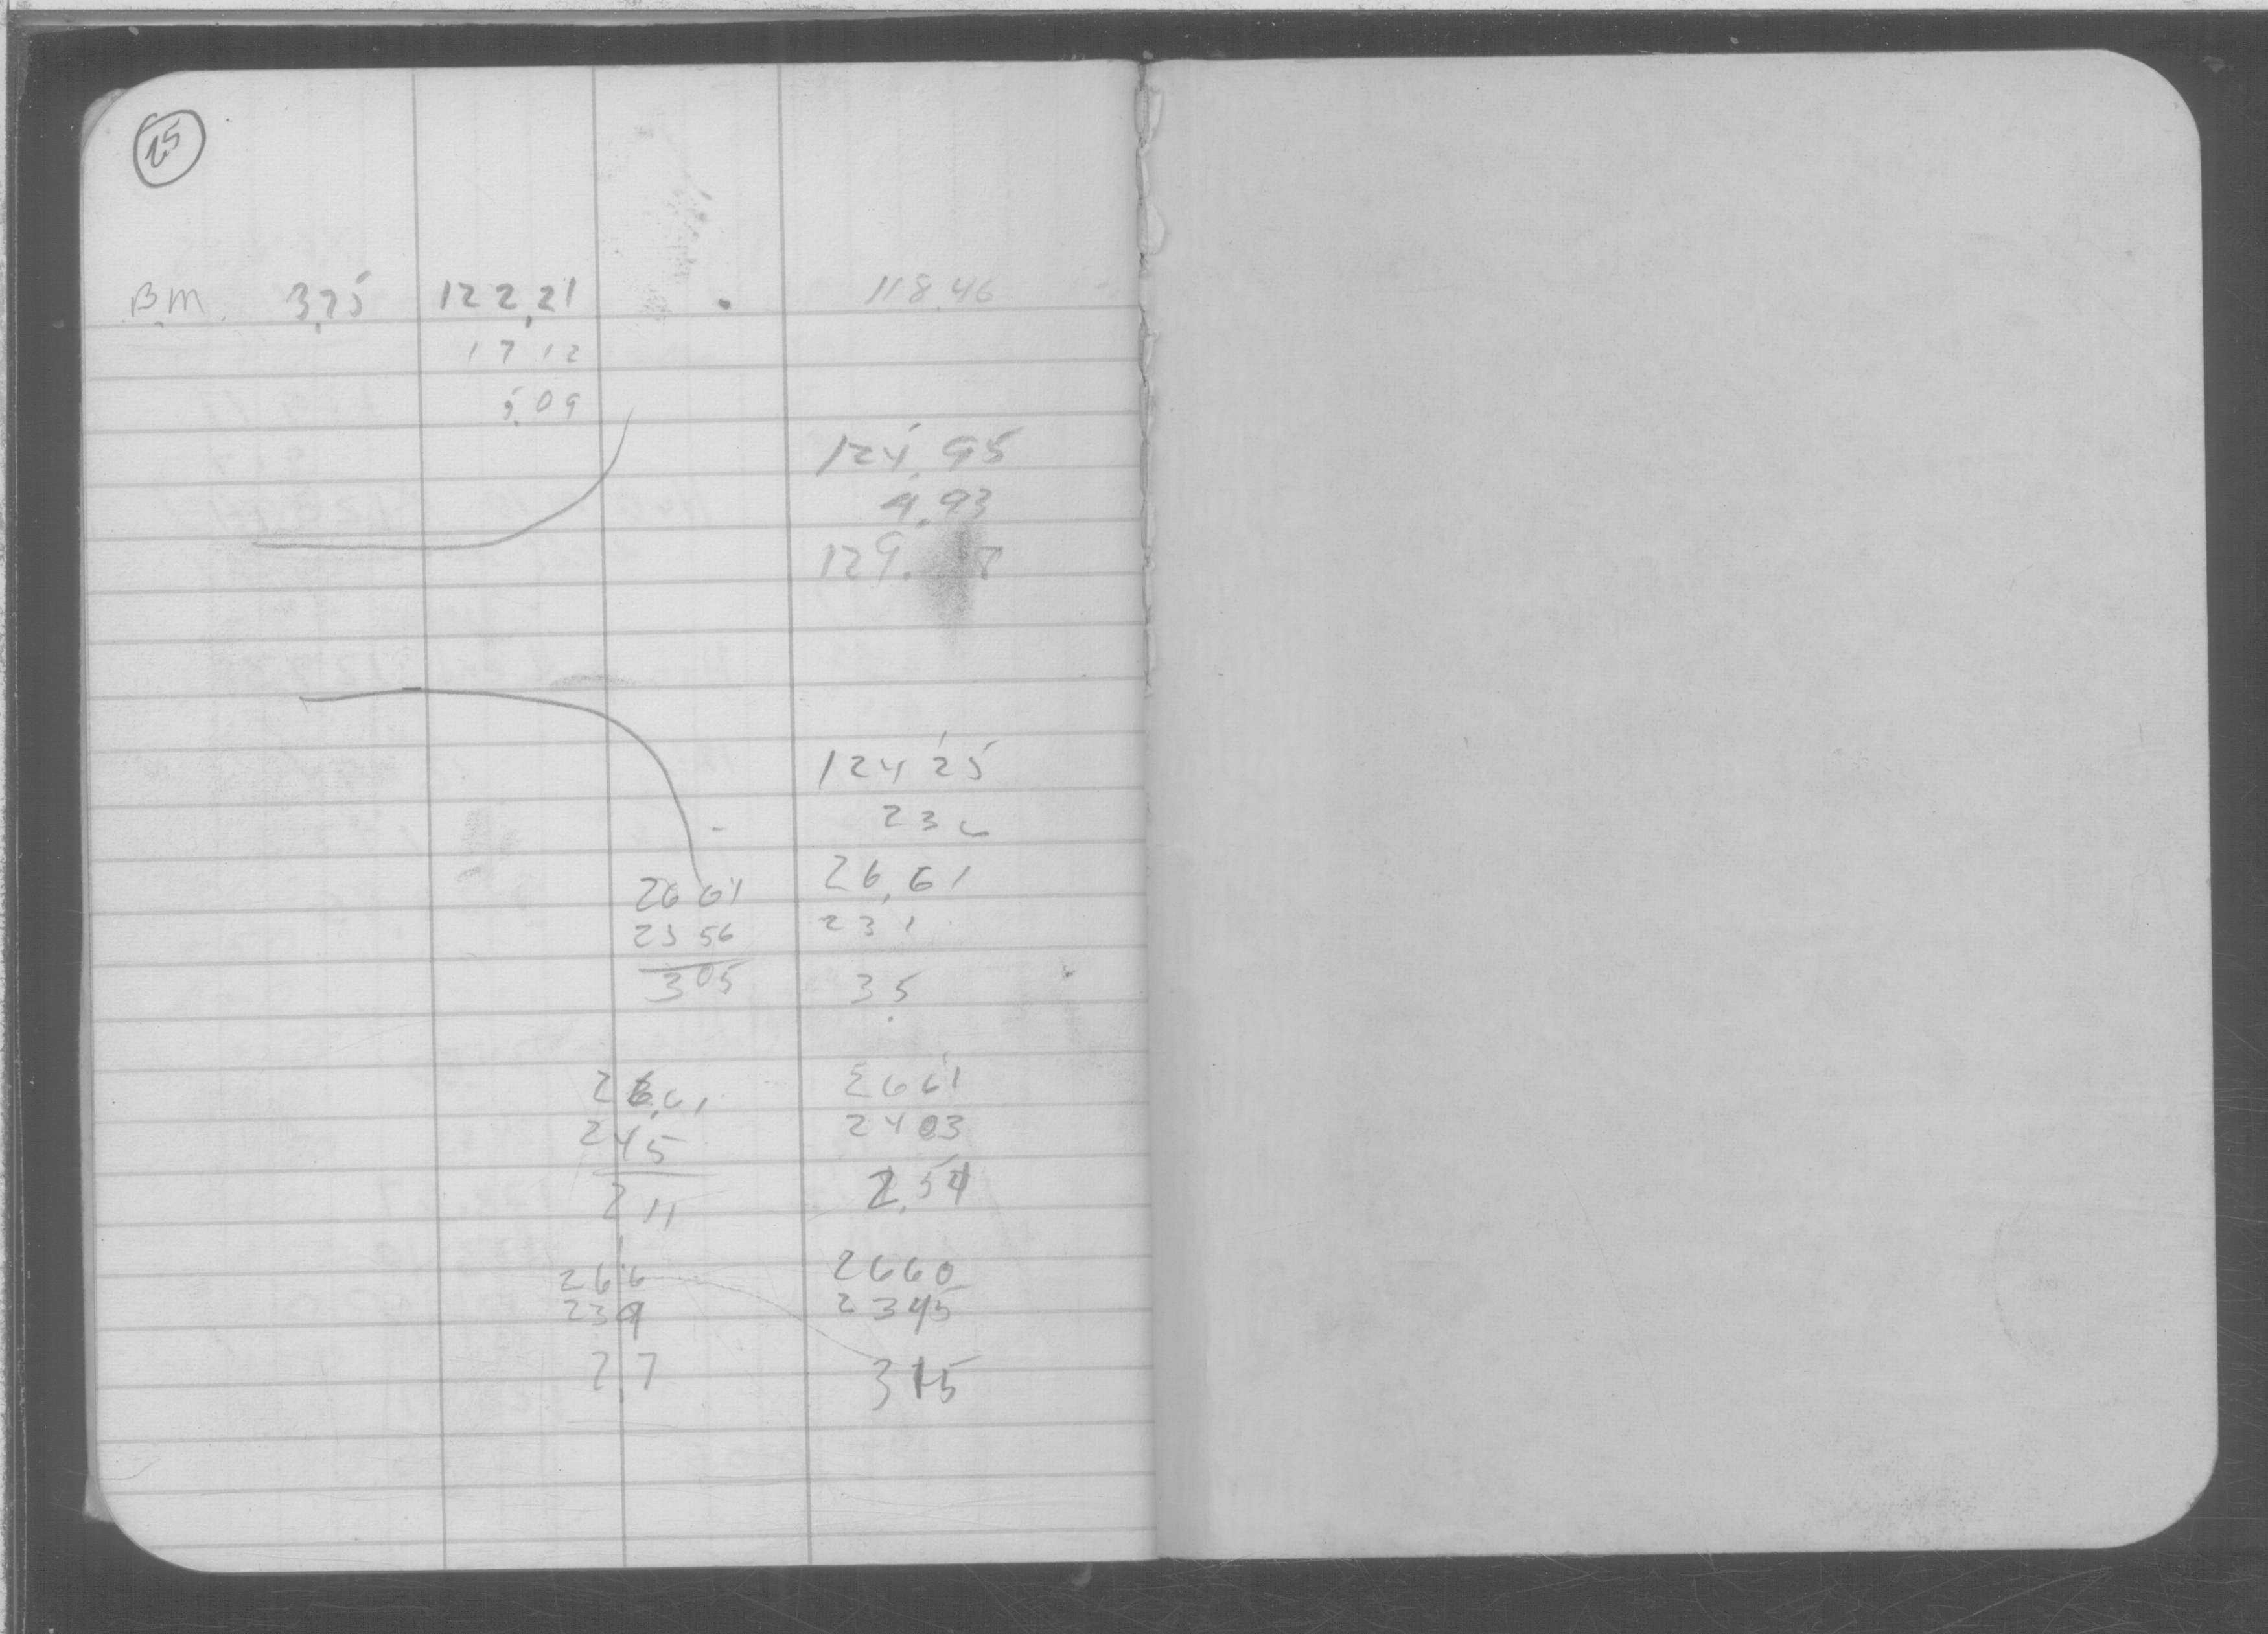 25
B.M. 3.75 122.21 118.46
17 12
5.09
124.95
4.93
129.
124 25
2 3 6
26 61 26.61
23 56 23 1
3 05 3.5
26.61 2661
24 5 2403
2 11 2.54
26 6 2660
23 9 2345
2.7 315